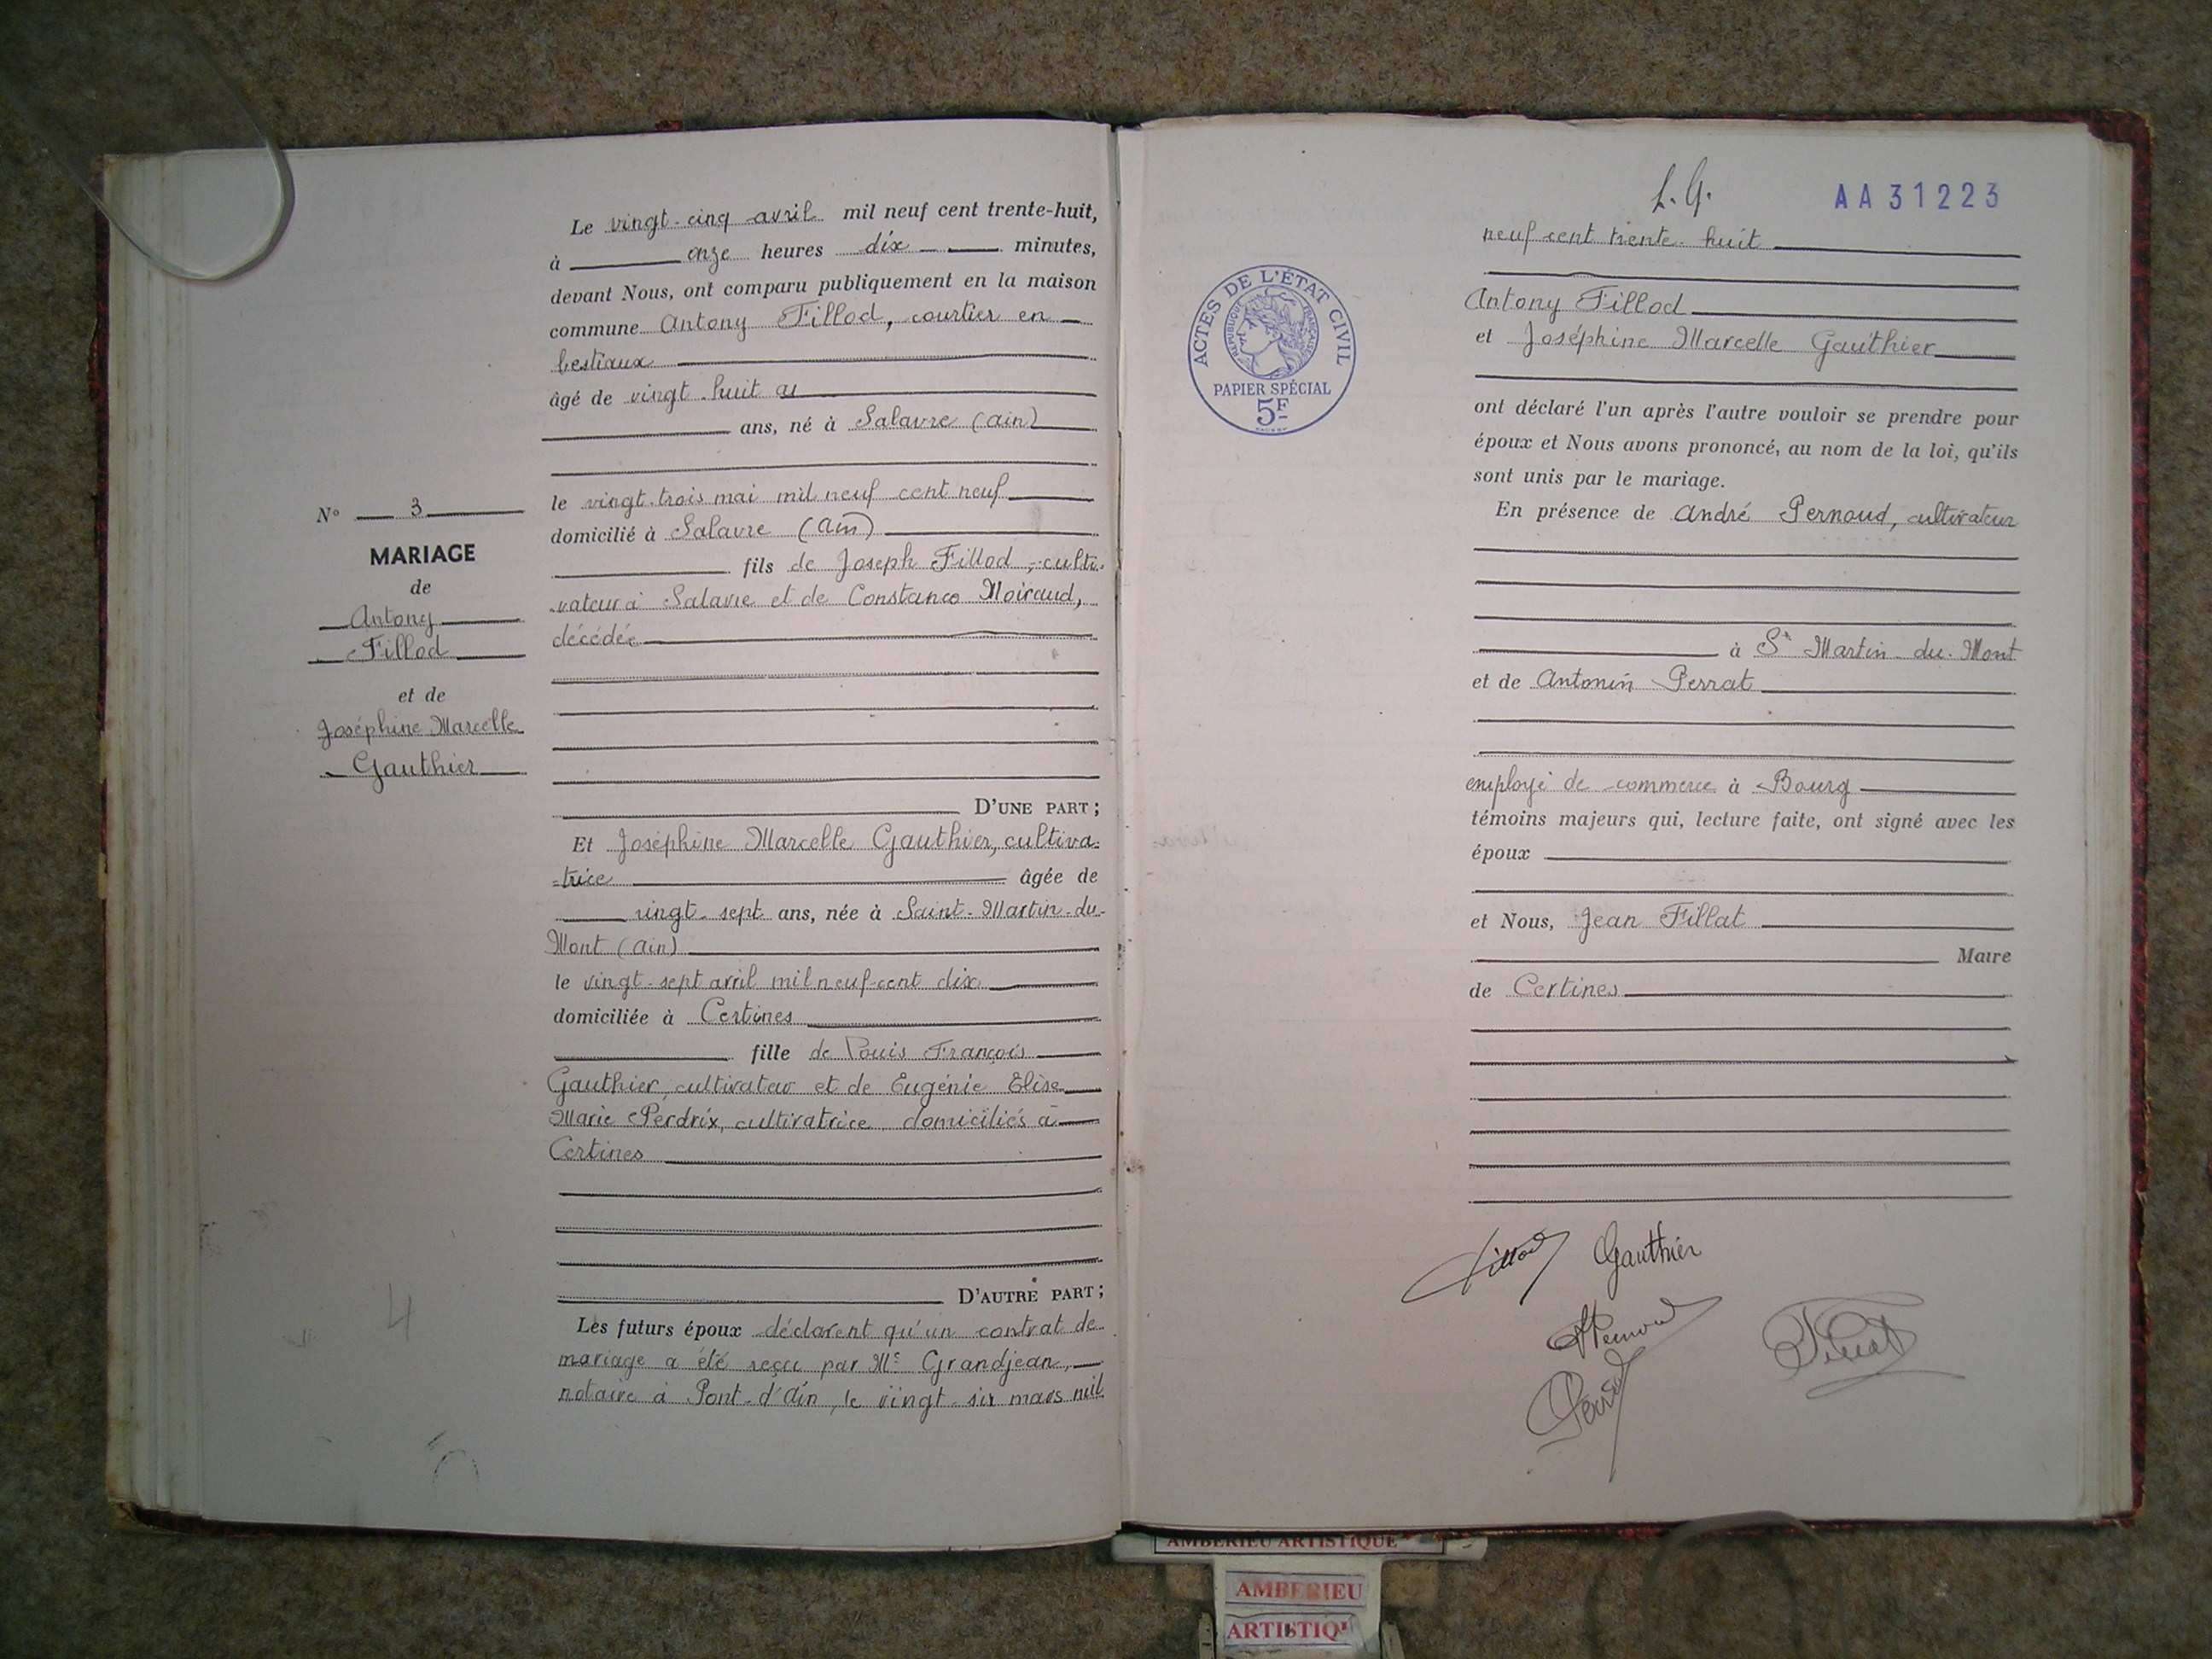 Le vingt-cinq avril mil neuf cent trente-huit,
à onze heures dix minutes,
devant Nous, ont comparu publiquement en la maison
commune Antony Fillod, courtier en
bestiaux
âgé de vingt-huit
ans, né à Salavre (Ain)
le vingt-trois mai mil neuf cent neuf
domicilié à Salavre (Ain)
fils de Joseph Fillod, culti-
-vateur à Salavre et de Constance Moiraud,
décédée
N° 3
MARIAGE
de
Antony
Fillod
et de
Joséphine Marcelle
Gauthier
D'UNE PART;
Et Joséphine Marcelle Gauthier, cultiva-
-trice âgée de
vingt-sept ans, née à Saint-Martin-du-
Mont (Ain)
le vingt-sept avril mil neuf-cent dix
domiciliée à Certines
fille de Louis François
Gauthier, cultivateur et de Eugénie Elise
Marie Perdrix, cultivatrice, domiciliés à
Certines
D'AUTRE PART;
Les futurs époux déclarent qu'un contrat de
mariage a été reçu par Me Grandjean,
notaire à Pont-d'Ain, le vingt-six mars mil
4
AA31223
neuf cent trente-huit
Antony Fillod
et Joséphine Marcelle Gauthier
ont déclaré l'un après l'autre vouloir se prendre pour
époux et Nous avons prononcé, au nom de la loi, qu'ils
sont unis par le mariage.
En présence de André Pernoud, cultivateur
à St Martin-du-Mont
et de Antonin Perrat
employé de commerce à Bourg
témoins majeurs qui, lecture faite, ont signé avec les
époux
et Nous, Jean Fillat
Maire
de Certines
Fillod Gauthier
APernoud
Perrat
ACTES DE L'ÉTAT CIVIL
RÉPUBLIQUE FRANÇAISE
PAPIER SPÉCIAL
5F
AMBERIEU ARTISTIQUE
AMBERIEU
ARTISTIQ